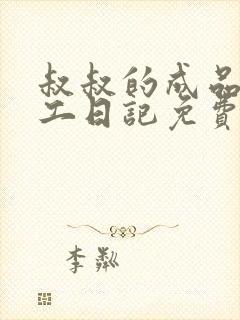 叔叔的成品
工日記免費
李粼